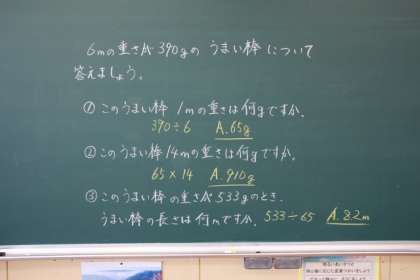 6mの重さが390gの うまい棒 について
答えましょう。
①このうまい棒 1mの重さは何gですか。
390÷6 A.65g
②このうまい棒14mの重さは何gですか。
65×14 A.910g
③このうまい棒の重さが533gのとき、
うまい棒の長さは何mですか。 533÷65 A.8.2m